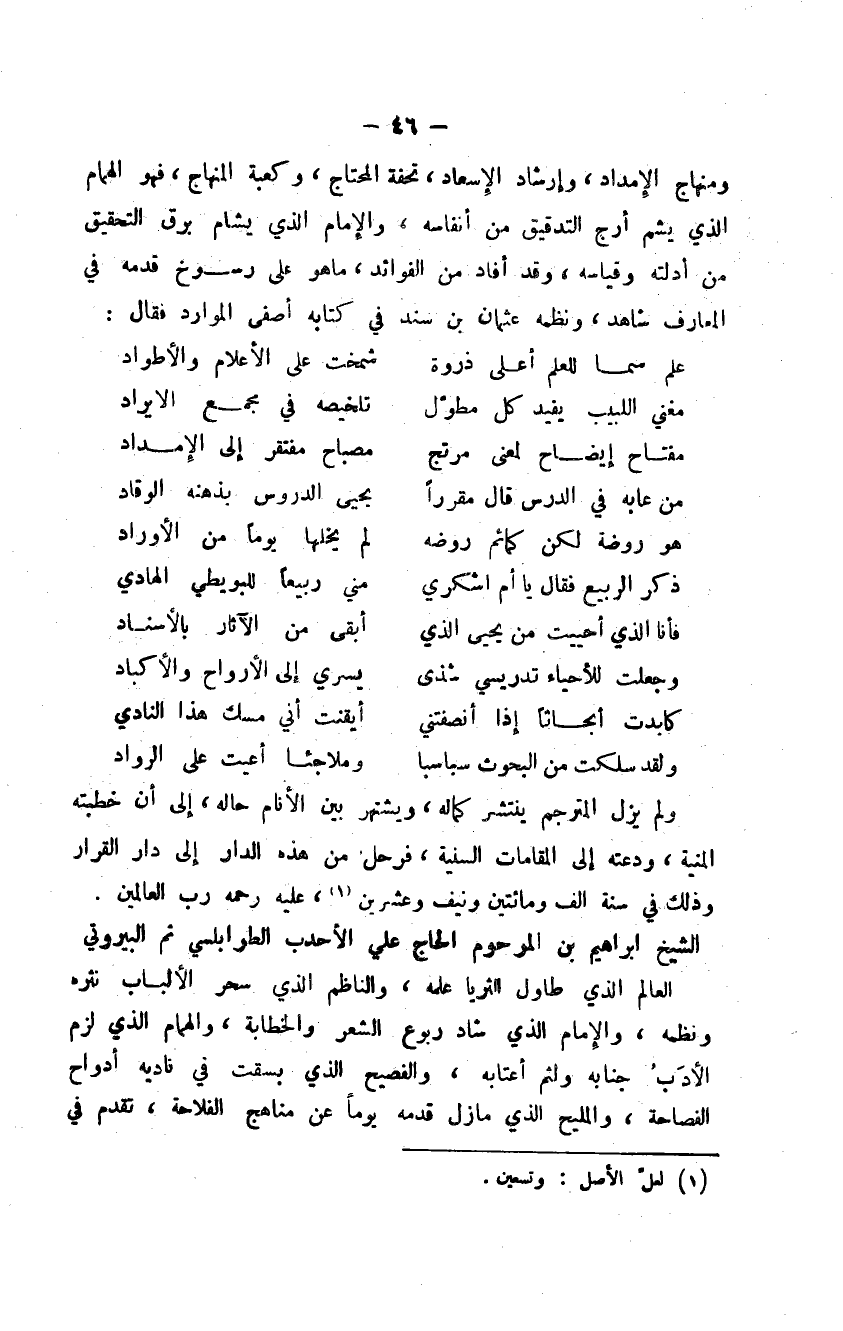 — ٤٦ —
ومنهاج الإمداد ، وإرشاد الإسعاد ، تحفة المحتاج ، وكعبة المنهاج ، فهو الهمام
الذي يشم أرج التدقيق من أنفاسه ، والإمام الذي يشام برق التحقيق
من أدلته وقياسه ، وقد أفاد من الفوائد ، ماهو على رسوخ قدمه في
المعارف شاهد ، ونظمه عثمان بن سند في كتابه أصفى الموارد فقال :
علم سما للعلم أعلى ذروة شمخت على الأعلام والأطواد
مغني اللبيب يفيد كل مطوّل تلخيصه في مجمع الايراد
مفتاح إيضاح لمعنى مرتج مصباح مفتقر إلى الإمداد
من عابه في الدرس قال مقرراً يحيى الدروس بذهنه الوقاد
هو روضة لكن كمائم روضه لم يخلها يوماً من الأوراد
ذكر الربيع فقال يا أم اشكري مني ربيعاً للبويطي الهادي
فأنا الذي أحييت من يحيى الذي أبقى من الآثار بالأسناد
وجعلت للأحياء تدريسي شذى يسري إلى الأرواح والأكباد
كابدت أبحاثاً إذا أنصفتني أيقنت أني مسك هذا النادي
ولقد سلكت من البحوث سباسبا وملاجئا أعيت على الرواد
ولم يزل المترجم ينتشر كماله ، ويشتهر بين الأنام حاله ، إلى أن خطبته
المنية ، ودعته إلى المقامات السنية ، فرحل من هذه الدار إلى دار القرار
وذلك في سنة الف ومائتين ونيف وعشرين (١) ، عليه رحمه رب العالمين .
الشيخ ابراهيم بن المرحوم الحاج علي الأحدب الطرابلسي ثم البيروتي
العالم الذي طاول الثريا علمه ، والناظم الذي سحر الألباب نثره
ونظمه ، والإمام الذي شاد ربوع الشعر والخطابة ، والهمام الذي لزم
الأدَبُ جنابه ولثم أعتابه ، والفصيح الذي بسقت في ناديه أدواح
الفصاحة ، والمليح الذي مازل قدمه يوماً عن مناهج الفلاحة ، تقدم في
(١) لعلّ الأصل : وتسعين .